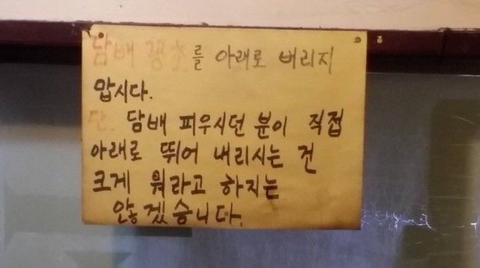 담배 꽁초를 아래로 버리지
맙시다.
단. 담배 피우시던 분이 직접
아래로 뛰어 내리시는 건
크게 뭐라고 하지는
않겠습니다.